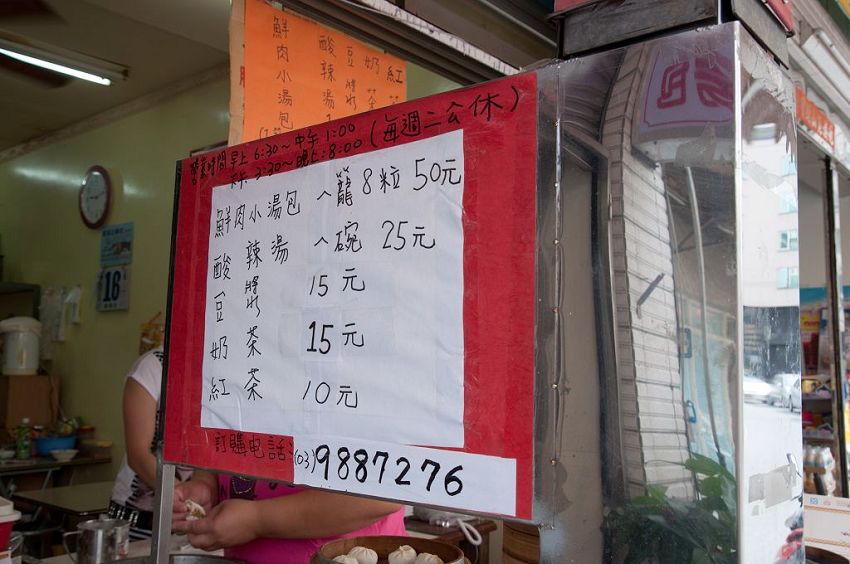 鮮肉小湯包
酸辣湯
豆漿
奶茶
紅
營業時間早上 6:30～中午 1:00
下午 2:30～晚上 8:00 (每週二公休)
鮮肉小湯包 一籠8粒 50元
酸辣湯 一碗 25元
豆漿 15元
奶茶 15元
紅茶 10元
訂購电話:(03)9887276
18
湯包